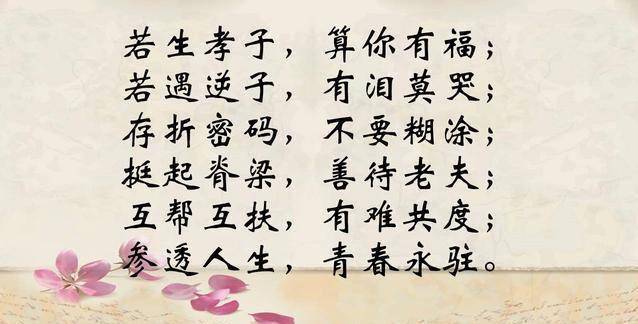 若生孝子，算你有福；
若遇逆子，有泪莫哭；
存折密码，不要糊涂；
挺起脊梁，善待老夫；
互帮互扶，有难共度；
参透人生，青春永驻。